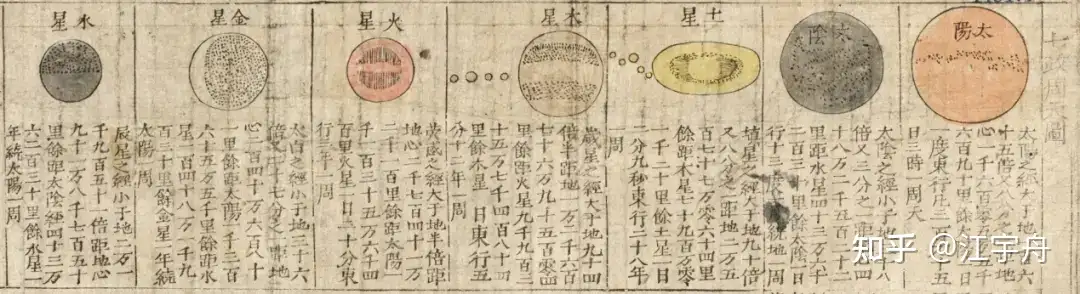 太陽
太陽之經大于地一百六
十五倍又八分之三距地
心一千六百零五萬五千
六百九十里餘太陽一日
一度東行凡三百六十五
日三時一周天
太陰
太陰之經小于地三十八
倍又三分之一距地心四
十八萬二千五百二十二
里餘距水星四十三萬六千
二百三十里餘太陰一日
行十三度
土星
填星之經大于地九十倍
又八分之一距地二萬五
百七十七萬零六十四里
餘距木星七千九百萬零
一千二十里餘土星一日
二分九秒東行二十八年
一周
木星
歲星之經大于地九十四
倍半距地一萬二千六百
七十六萬九千五百零四
里餘距火星九千九百三
十五萬七千四百八十四
里餘木星一日東行五
分十二年一周
火星
熒惑之經大于地半倍距
地心二千七百四十一萬
二千一百里餘距太陽一
千一百三十五萬六千四
百里火星一日三十分東
行三年一周
金星
太白之經小于地三十六
倍又二十七分之一距地
心二百四十萬六百八十
一里餘距太陽一千二百
六十五萬五千里餘距水
星一百四十八萬一千九
百三十里餘金星一年繞
太陽一周
水星
辰星之經小于地二萬一
千九百五十一倍距地心
九十一萬八千七百五十
里餘距太陰經四十三萬
六百二百三十里餘水星一
年繞太陽一周
知乎 @江宇舟